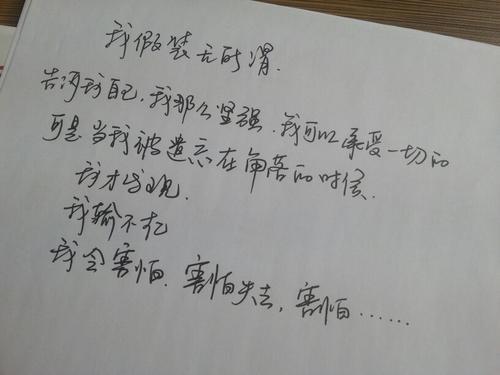 我假装无所谓.
告诉我自己,我那么坚强.我可以承受一切的
可是当我被遗忘在角落的时候.
我才发现.
我输不起
我会害怕.害怕失去,害怕……